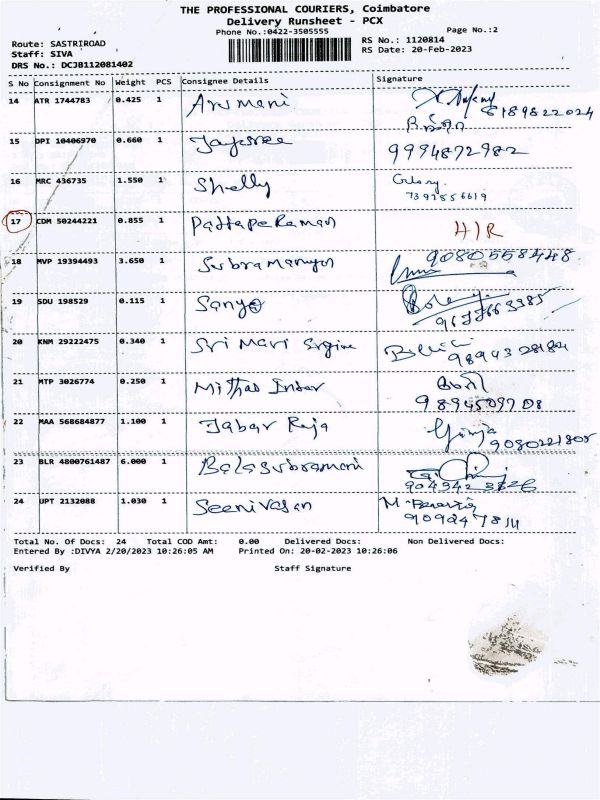 THE PROFESSIONAL COURIERS, Coimbatore
Delivery Runsheet - PCX
Phone No.:0422-3505555 Page No.:2
Route: SASTRIROAD RS No.: 1120814
Staff: SIVA RS Date: 20-Feb-2023
DRS No.: DCJB112081402
S No Consignment No Weight PCS Consignee Details Signature
14 ATR 1744783 0.425 1 Arumani 8189822024
15 DPI 10406970 0.660 1 Jaysree 9994872982
16 MRC 436735 1.550 1 Shelly
7392856619
17 CDM 50244221 0.855 1 Pattape Raman H/R
18 MVP 19394493 3.650 1 Subramaniyan 9080558448
19 SDU 198529 0.115 1 Sanyo
9677663385
20 KNM 29222475 0.340 1 Sri Mari Engine
9894328184
21 MTP 3026774 0.250 1 Mithas Inter
9894509708
22 MAA 568684877 1.100 1 Jabar Raja Girija
9080221805
23 BLR 4800761487 6.000 1 Balasubramani
24 UPT 2132088 1.030 1 Seenivasan M.
Total No. Of Docs: 24 Total COD Amt: 0.00 Delivered Docs: Non Delivered Docs:
Entered By :DIVYA 2/20/2023 10:26:05 AM Printed On: 20-02-2023 10:26:06
Verified By Staff Signature